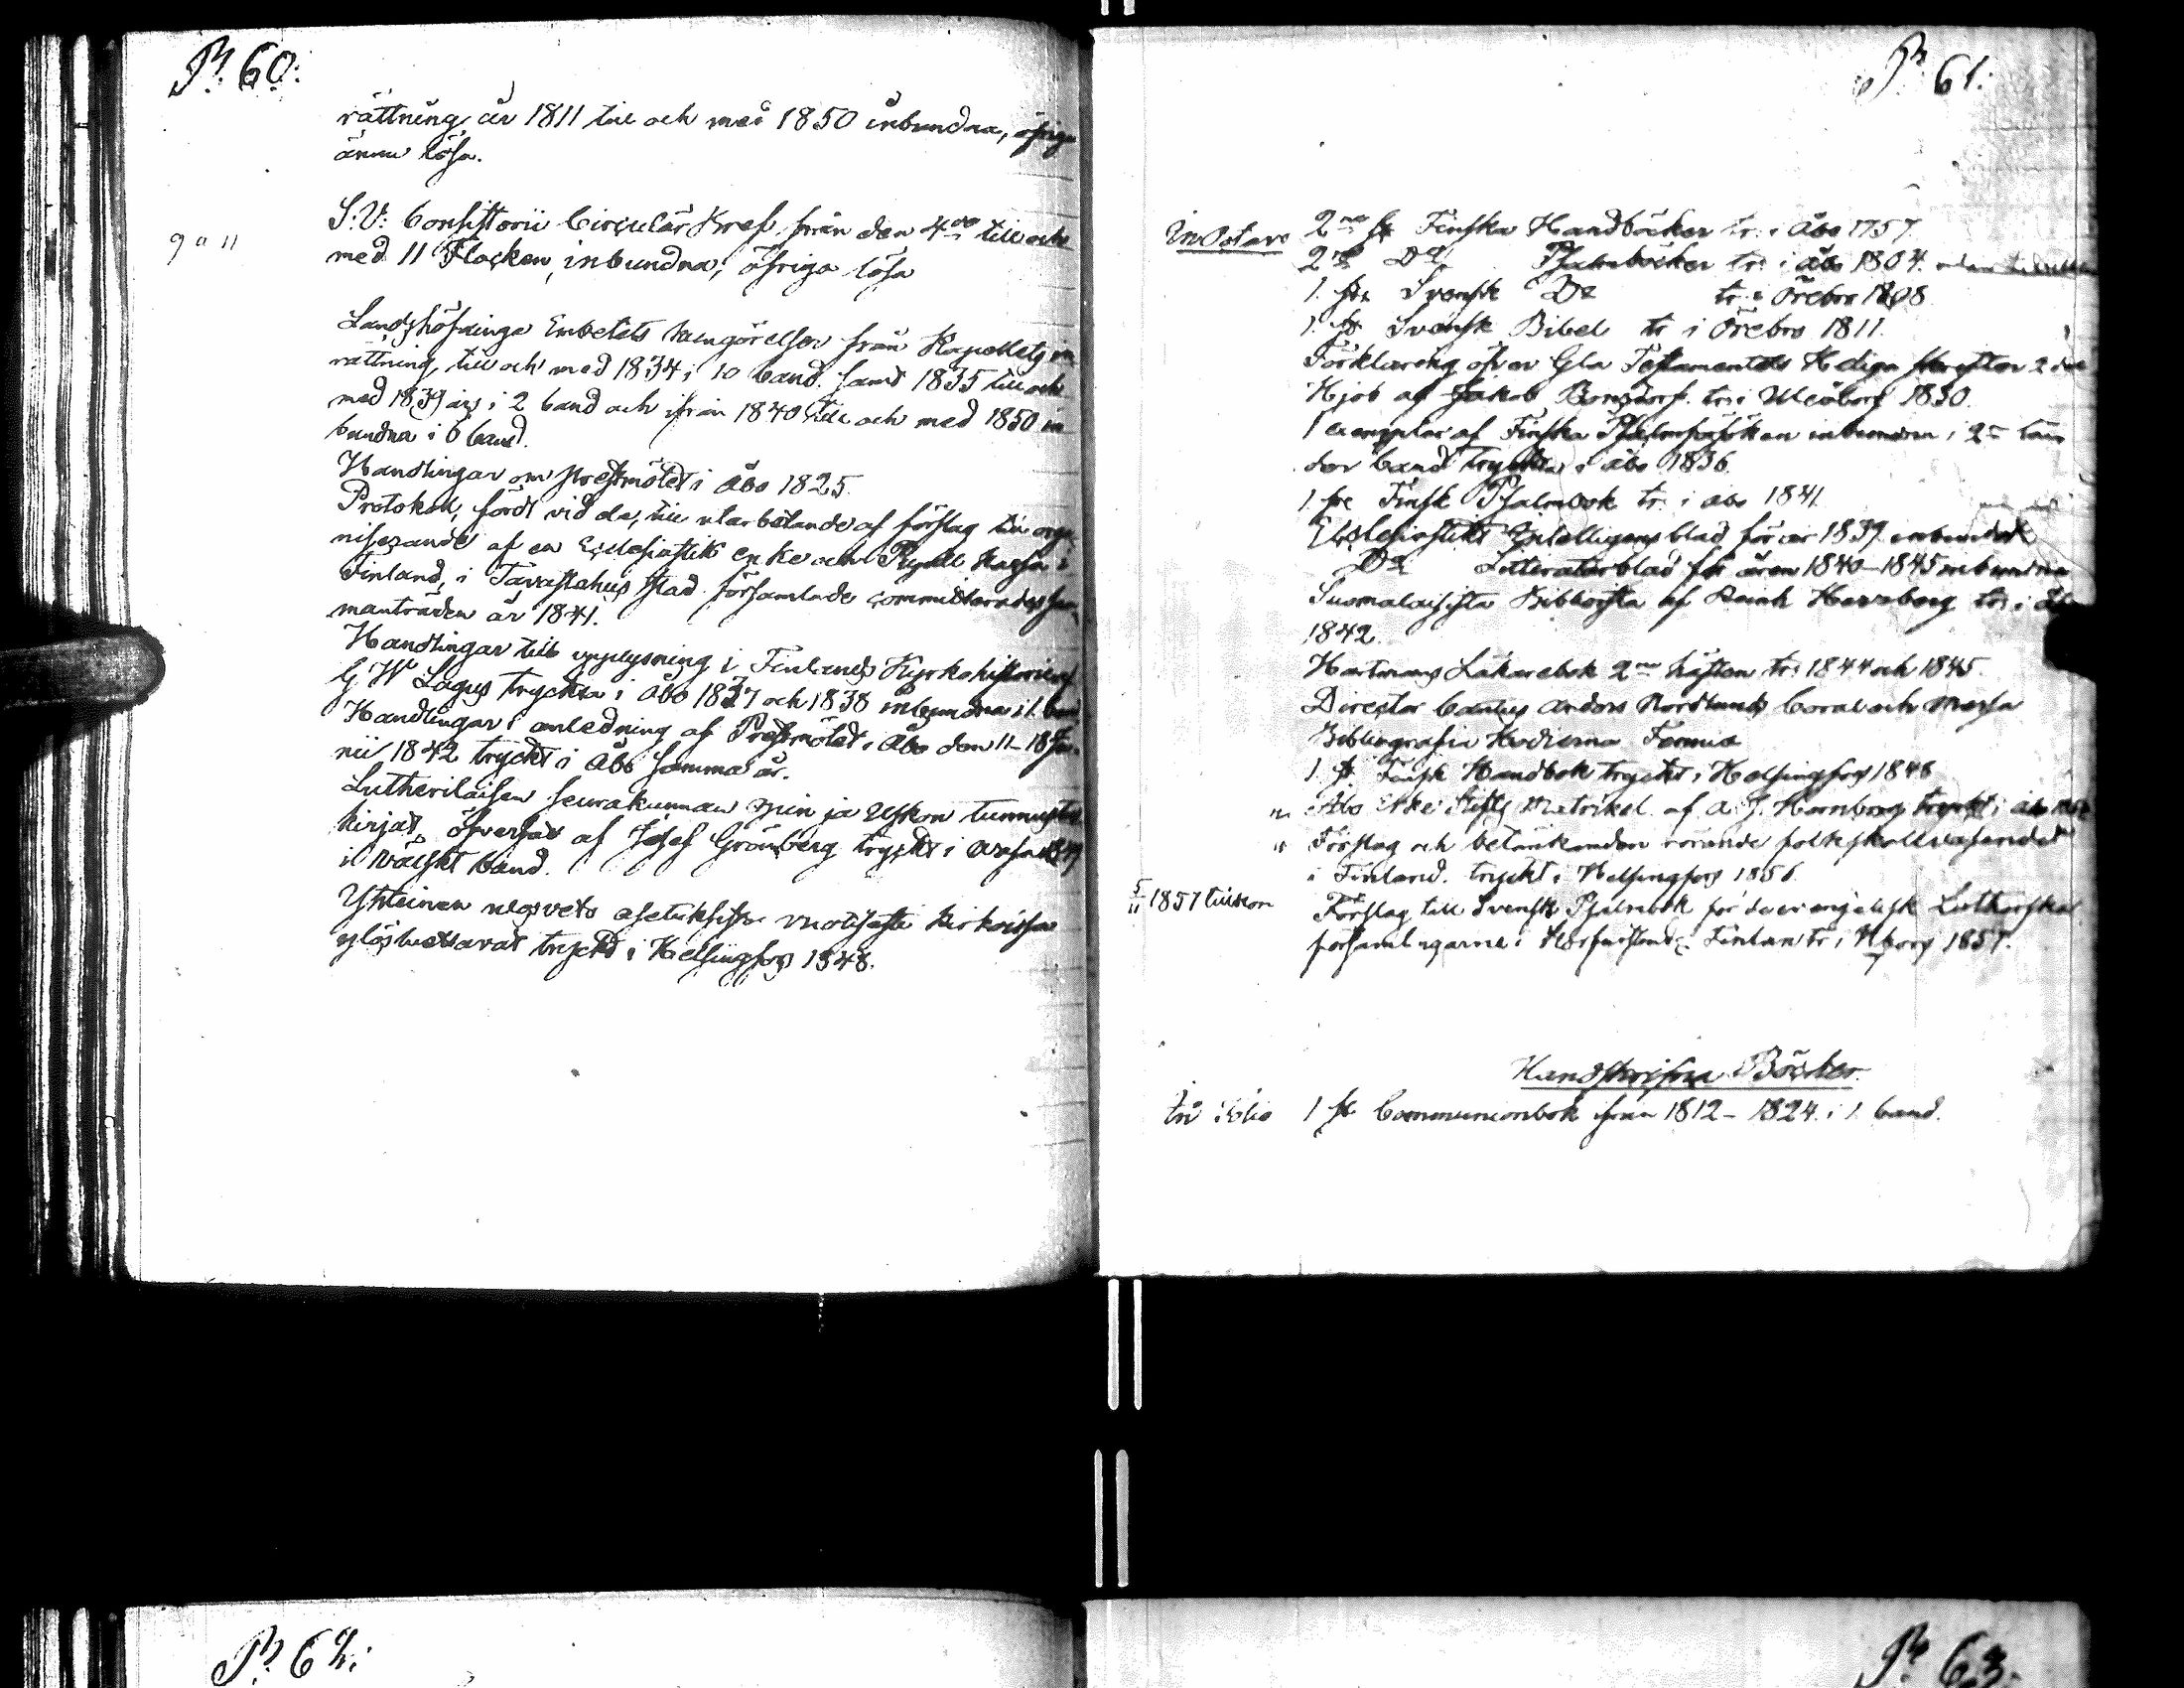 P. 60.
rättning år 1811 till och med 1850 inbundna, öfriga
ännu lösa.
9 a 11
S. V. Consistorii Circulär bref från den 4de till och
med 11 Flocken inbundna, öfriga lösa
Landshöfdinge Embetets kungörelser från Kapellets in
rättning, till och med 1834 i 10 band. samt 1835 till och
med 1839 års i 2 band och ifrån 1840 till och med 1850 in
bundna i 6 band.
Handlingar om prestmötet i Åbo 1825.
Protokoll, fördt vid de, till utarbetande af förslag till orga
niserande af en Ecclesiastik enke och Pupill Kassa i
Finland, i Tavastehus stad församlade committerades sam
manträden år 1841.
Handlingar till upplysning i Finlands Kyrkohistorie af
G W Lagus tryckta i Åbo 1837 och 1838 inbundna i 1. band
Handlingar i anledning af Prestmötet i Åbo den 11-18 Ju-
nii 1842 tryckt i Åbo samma år.
Lutherilaisen seurakunnan opin ja Uskon tunnustus
kirjat, öfversatt af Josef Grönberg tryckt i Wasa 1849
i Wälskt band.
Yhteinen neuvoto asetuksissa vuotisesti kirkoissa
ylösluettavat tryckt i Helsingfors 1848.
P. 61.
In Octavo
2ne st Finska Handböcker tr: i Åbo 1757.
2ne Do Psalmböcker tr: i Åbo 1804.
1. st. Svensk Do tr: i Örebro 1808
1. st Svensk Bibel tr i Örebro 1811.
Förklaring öfver Gla Testamentets Heliga skrifter 2
Hjob af Jakob Bonsdorf. tr: i Uleåborg 1830.
1 exemplar af Finska Psalmboken inbunden i 2ne
der band tryckta i Åbo 1836.
1 st Finsk Psalmbok tr: i Åbo 1841.
Ecclesiastikt Intelligens blad för år 1839. inbundet
Do Litteraturblad för åren 1840-1845 inbundna
Suomalaisista Bibliotka af Reinh Herzberg tr: i Åbo
1842.
Hartmans Läkarebok 2ne häften tr: 1844 och 1845.
Director Cantus Anders Nordlunds Coral och Messa
Bibliografia Hodierna Fennia
1. st Finsk Handbok tryckt i Helsingfors 1848
" Åbo Erke Stifts Matrikel af A. J. Hornborg tryckt i Åbo
" Förslag och betänkanden rörande folkskolväsendet
i Finland. tryckt i Helsingfors 1856.
5/11 1857 tillkom
Förslag till Svensk Psalmbok för de evangelisk Lutherska
församlingarne i Storfurstend: Finlan tr: i Hfors 1857.
Handskrifna Böcker.
In folio
1 st Communionbok ifrån 1812-1824. i 1. band.
P. 62.
P. 63.